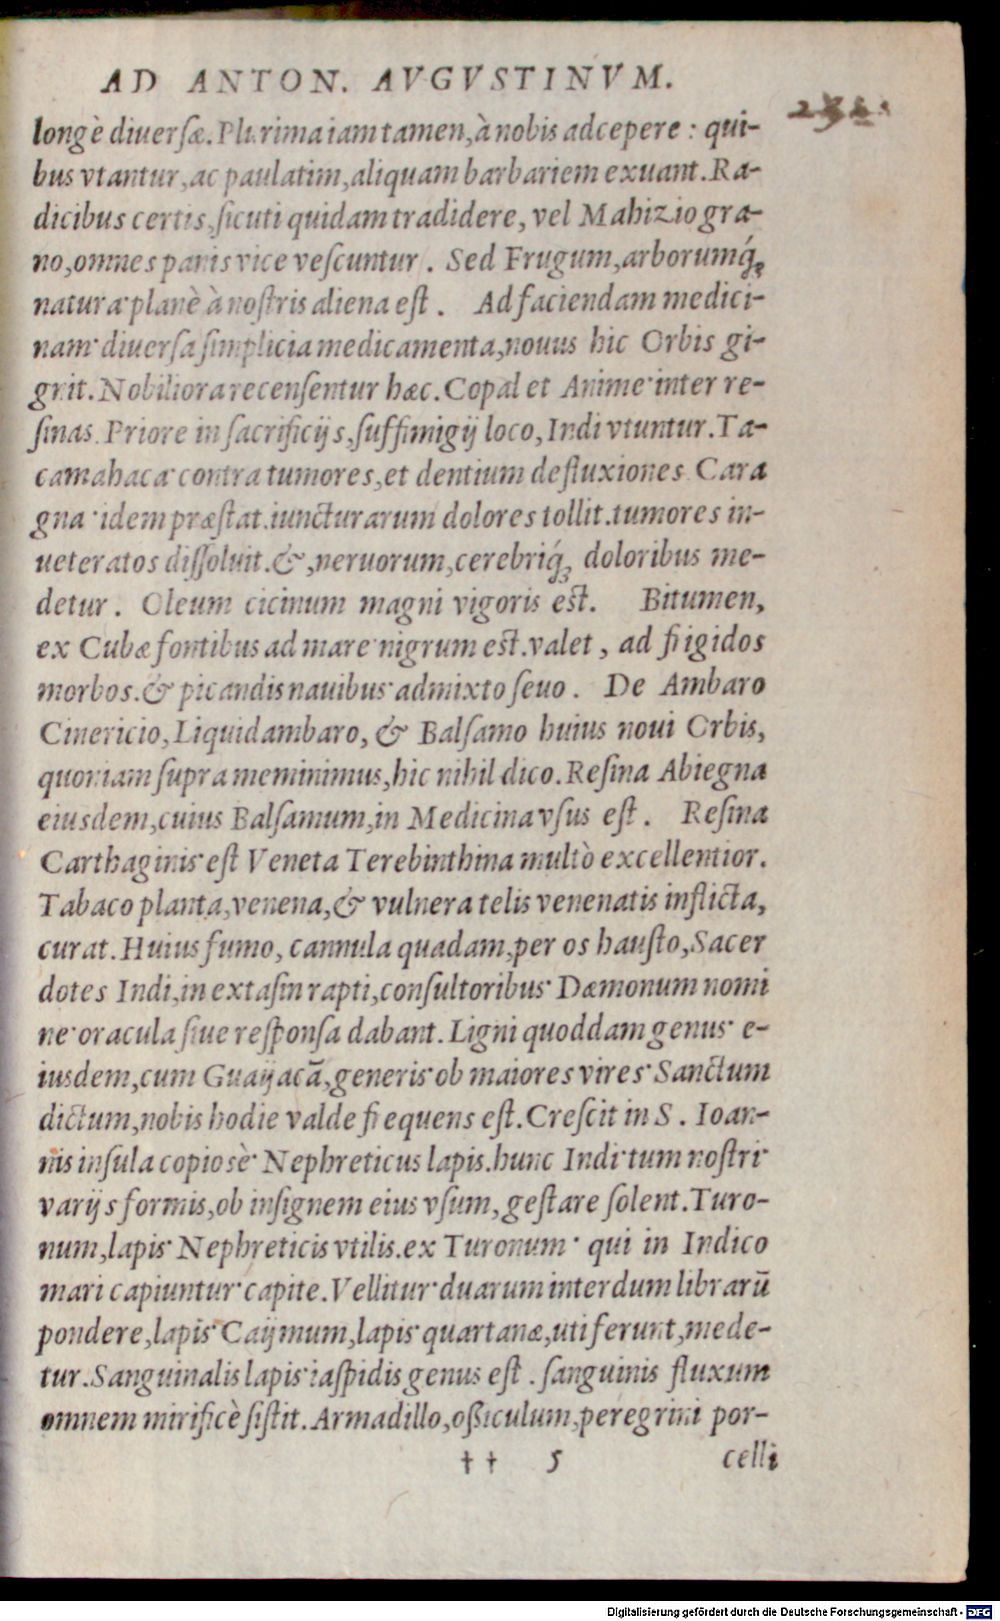 AD ANTON. AVGVSTINVM.
longè diuersæ. Plurima iam tamen, à nobis adcepere : qui-
bus vtantur, ac paulatim, aliquam barbariem exuant. Ra-
dicibus certis, sicuti quidam tradidere, vel Mahizio gra-
no, omnes panis vice vescuntur . Sed Frugum, arborumq́;
natura planè à nostris aliena est . Ad faciendam medici-
nam diuersa simplicia medicamenta, nouus hic Orbis gi-
gnit. Nobiliora recensentur hæc. Copal et Anime inter re-
sinas. Priore in sacrificijs, suffimigij loco, Indi vtuntur. Ta-
camahaca contra tumores, et dentium defluxiones Cara
gna idem præstat. iuncturarum dolores tollit. tumores in-
ueteratos dissoluit. &, neruorum, cerebriq́; doloribus me-
detur . Oleum cicinum magni vigoris est. Bitumen,
ex Cubæ fontibus ad mare nigrum est. valet , ad frigidos
morbos. & picandis nauibus admixto seuo . De Ambaro
Cinericio, Liquidambaro, & Balsamo huius noui Orbis,
quoniam supra meminimus, hic nihil dico. Resina Abiegna
eiusdem, cuius Balsamum, in Medicina vsus est . Resina
Carthaginis est Veneta Terebinthina multò excellentior.
Tabaco planta, venena, & vulnera telis venenatis inflicta,
curat. Huius fumo, cannula quadam, per os hausto, Sacer
dotes Indi, in extasin rapti, consultoribus Dæmonum nomi
ne oracula siue responsa dabant. Ligni quoddam genus e-
iusdem, cum Guaijacā, generis ob maiores vires Sanctum
dictum, nobis hodie valde frequens est. Crescit in S . Ioan-
nis insula copiosè Nephreticus lapis. hunc Indi tum nostri
varijs formis, ob insignem eius vsum, gestare solent. Turo-
num, lapis Nephreticis vtilis. ex Turonum qui in Indico
mari capiuntur capite. Vellitur duarum interdum librarū
pondere, lapis Caijmum, lapis quartanæ, uti ferunt, mede-
tur. Sanguinalis lapis iaspidis genus est . sanguinis fluxum
omnem mirificè sistit. Armadillo, ossiculum, peregrini por-
†† 5 celli
Digitalisierung gefördert durch die Deutsche Forschungsgemeinschaft - DFG